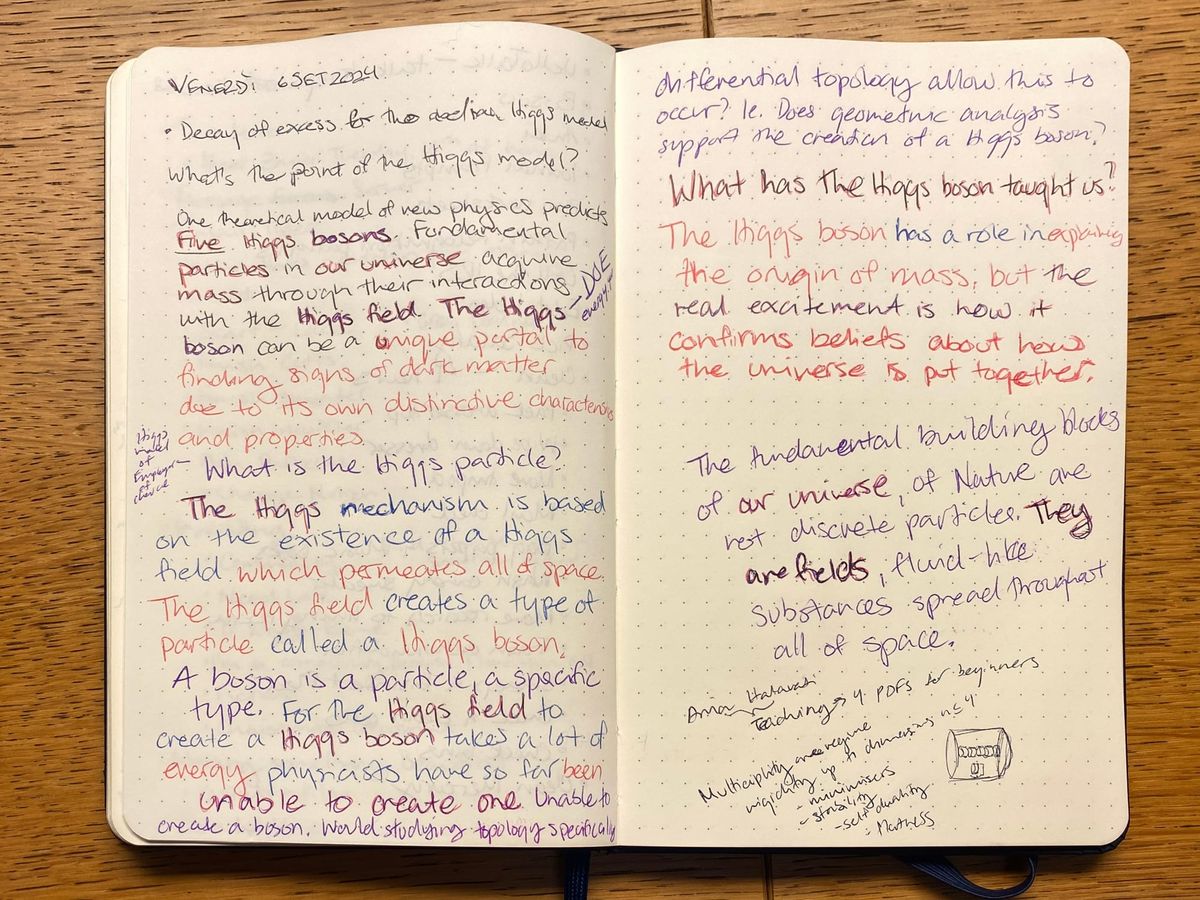 VENERDÌ 6 SET 2024
• Decay of excess for the abelian Higgs model
What's the point of the Higgs model?
One theoretical model of new physics predicts
Five Higgs bosons. Fundamental
particles in our universe acquire
mass through their interactions
with the Higgs field. The Higgs — DOE
boson can be a unique portal to
finding signs of dark matter
due to its own distinctive characteristics
and properties.
Higgs
model
of
Employer
of
choice
— What is the Higgs particle?
The Higgs mechanism is based
on the existence of a Higgs
field which permeates all of space.
The Higgs field creates a type of
particle called a Higgs boson.
A boson is a particle, a specific
type. For the Higgs field to
create a Higgs boson takes a lot of
energy physicists have so far been
unable to create one. Unable to
create a boson. Would studying topology specifically
differential topology allow this to
occur? Ie. Does geometric analysis
support the creation of a Higgs boson?
What has the Higgs boson taught us?
The Higgs boson has a role in explaining
the origin of mass; but the
real excitement is how it
confirms beliefs about how
the universe is put together.
The fundamental building blocks
of our universe, of Nature are
not discrete particles. They
are fields, fluid-like
substances spread throughout
all of space.
Teaching → 4 PDFs for beginners
Multiplicity one regime
rigidity up to dimensions n ≤ 4
- minimisers
- stability
- self duality